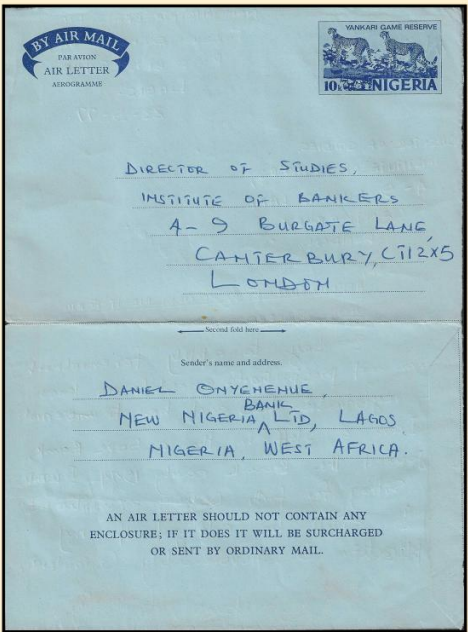 BY AIR MAIL
PAR AVION
AIR LETTER
AEROGRAMME
YANKARI GAME RESERVE
10k NIGERIA
DIRECTOR OF STUDIES,
INSTITUTE OF BANKERS
4-9 BURGATE LANE,
CANTERBURY, CT12X5
LONDON
Second fold here
Sender's name and address.
DANIEL ONYEHENUE,
NEW NIGERIA BANK LTD, LAGOS
NIGERIA, WEST AFRICA.
AN AIR LETTER SHOULD NOT CONTAIN ANY
ENCLOSURE; IF IT DOES IT WILL BE SURCHARGED
OR SENT BY ORDINARY MAIL.